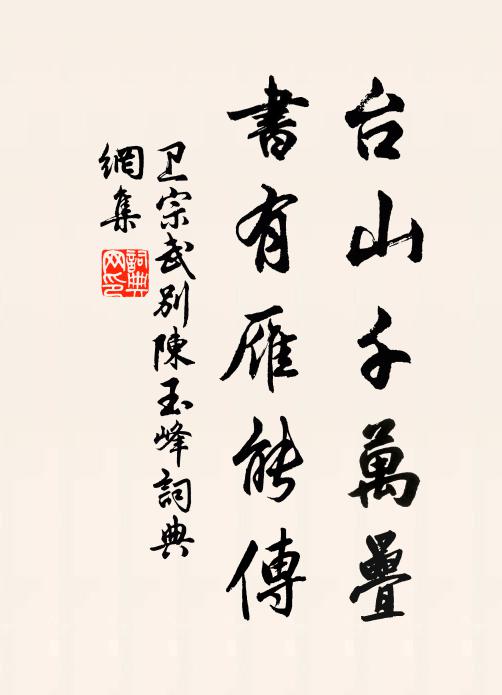 台山千萬疊
書有雁能傳
卫宗武別陳玉峰詞典
網集
詞典
网印